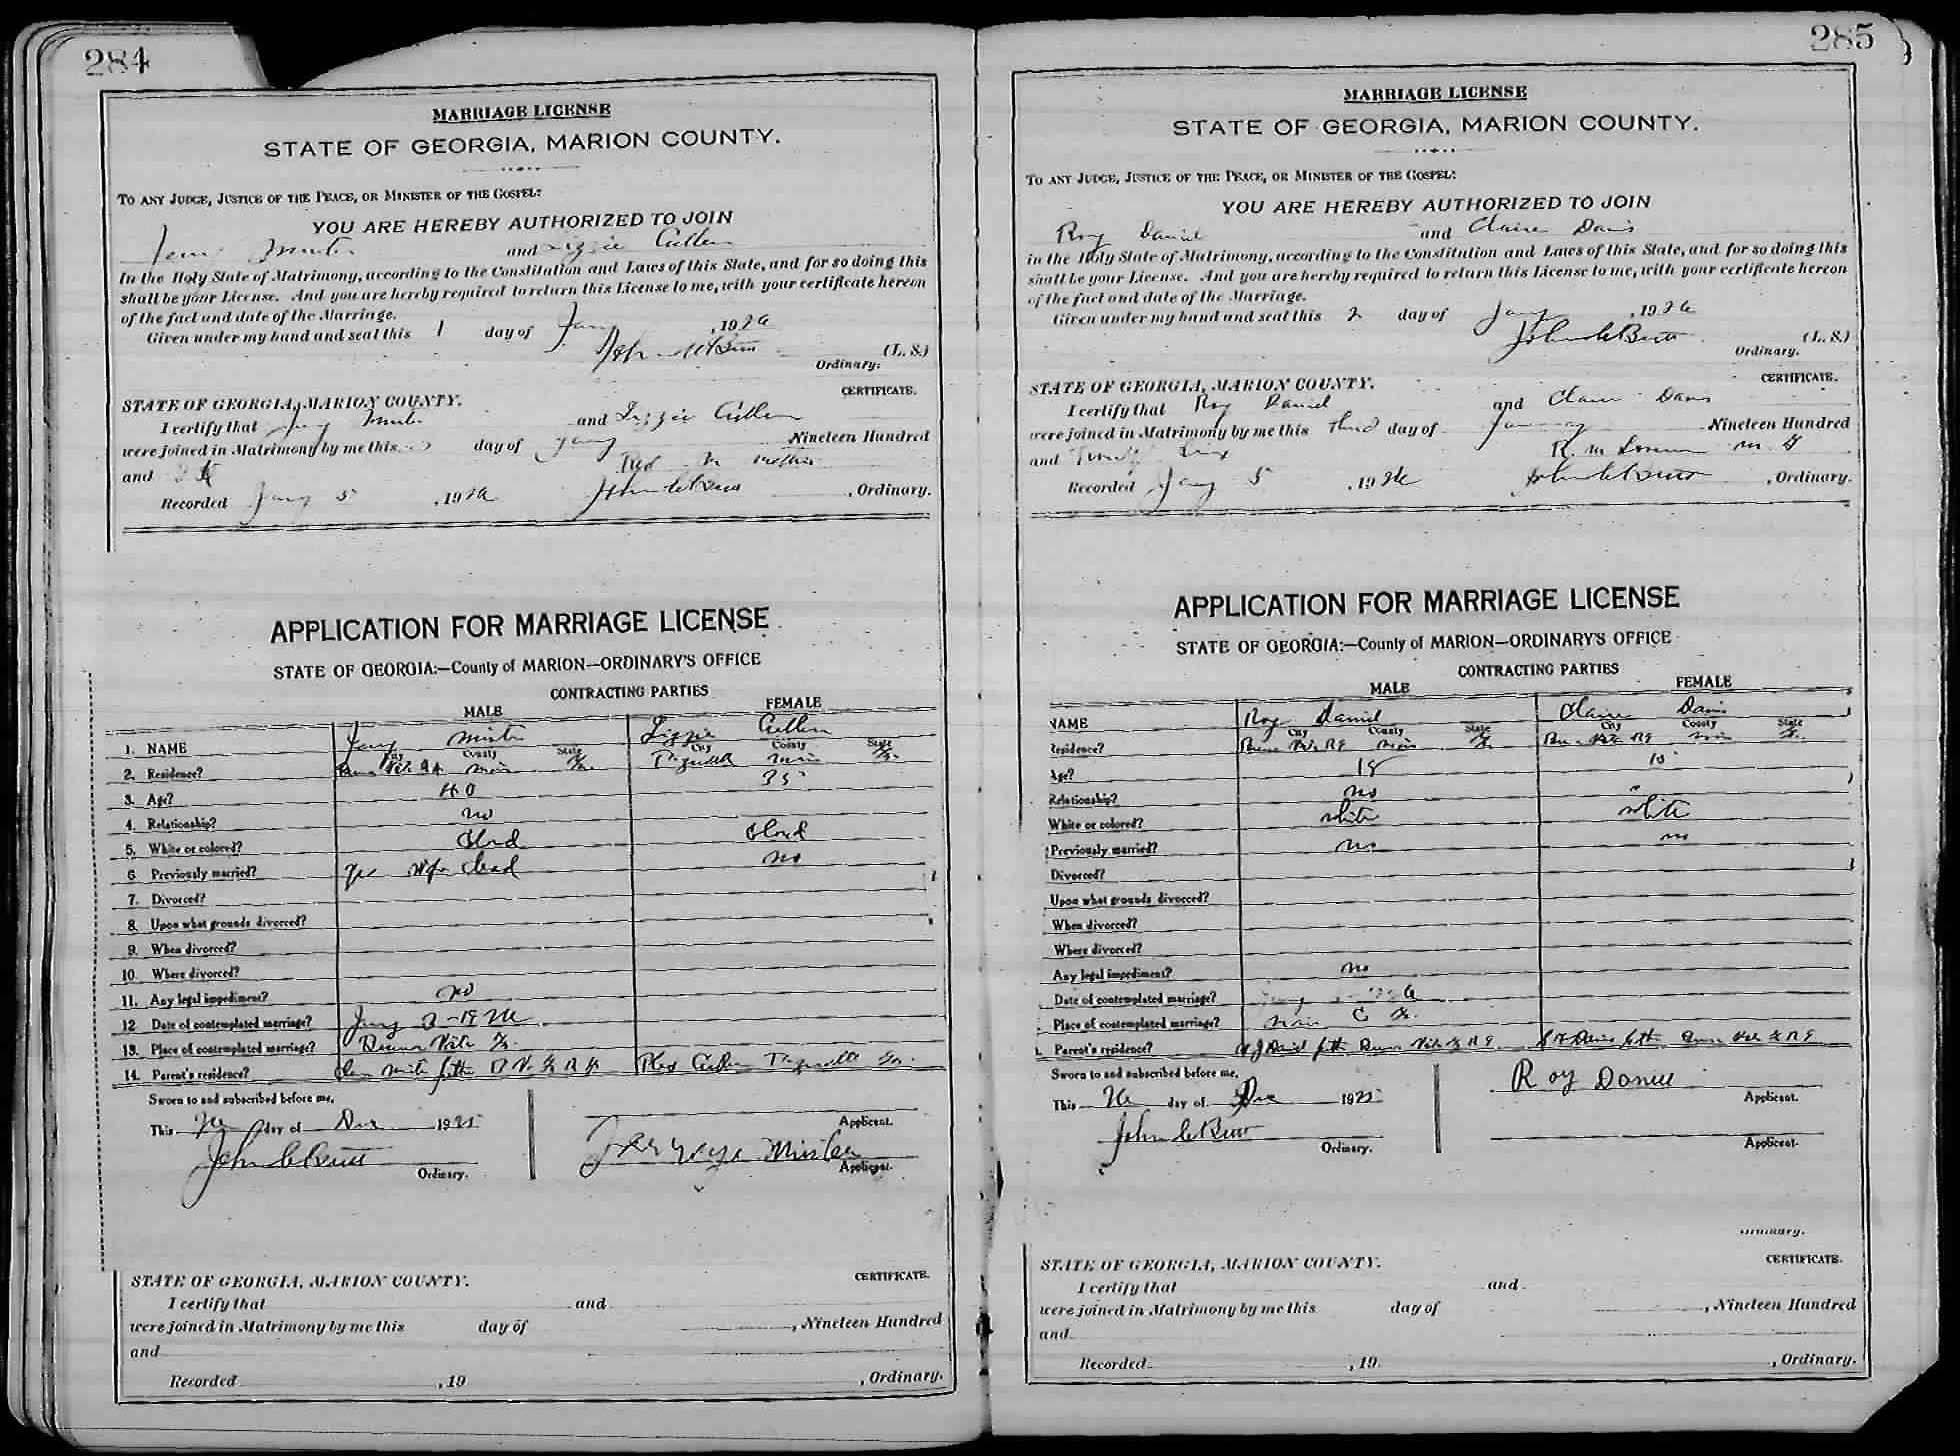 284
MARRIAGE LICENSE
STATE OF GEORGIA, MARION COUNTY.
TO ANY JUDGE, JUSTICE OF THE PEACE, OR MINISTER OF THE GOSPEL:
YOU ARE HEREBY AUTHORIZED TO JOIN
and Lizzie Cullen
In the Holy State of Matrimony, according to the Constitution and Laws of this State, and for so doing this
shall be your License. And you are hereby required to return this License to me, with your certificate hereon
of the fact and date of the Marriage.
Given under my hand and seal this 1 day of Jany, 1926
(L. S.)
Ordinary.
CERTIFICATE.
STATE OF GEORGIA, MARION COUNTY.
I certify that and Lizzie Cullen
were joined in Matrimony by me this day of Jany Nineteen Hundred
and
Recorded Jany 5, 1926 , Ordinary.
APPLICATION FOR MARRIAGE LICENSE
STATE OF GEORGIA:—County of MARION—ORDINARY'S OFFICE
CONTRACTING PARTIES
MALE FEMALE
1. NAME Lizzie Cullen
City County State City County State
2. Residence?
3. Age? 40 35
4. Relationship? no
5. White or colored? Clrd Clord
6 Previously married? yes wife dead no
7. Divorced?
8. Upon what grounds divorced?
9. When divorced?
10. Where divorced?
11. Any legal impediment? no
12 Date of contemplated marriage? Jany 3-1926
13. Place of contemplated marriage? Buena Vista Ga.
14. Parent's residence?
Sworn to and subscribed before me,
This 26 day of Dec 1925 Applicant.
John C Butt
Ordinary. Applicant.
STATE OF GEORGIA, MARION COUNTY. CERTIFICATE.
I certify that and
were joined in Matrimony by me this day of , Nineteen Hundred
and
Recorded , 19 , Ordinary.
285
MARRIAGE LICENSE
STATE OF GEORGIA, MARION COUNTY.
TO ANY JUDGE, JUSTICE OF THE PEACE, OR MINISTER OF THE GOSPEL:
YOU ARE HEREBY AUTHORIZED TO JOIN
Roy Daniel and Claire Davis
in the Holy State of Matrimony, according to the Constitution and Laws of this State, and for so doing this
shall be your License. And you are hereby required to return this License to me, with your certificate hereon
of the fact and date of the Marriage.
Given under my hand and seal this 2 day of Jany, 1926
John C Butt (L. S.)
Ordinary.
CERTIFICATE.
STATE OF GEORGIA, MARION COUNTY.
I certify that Roy Daniel and Claire Davis
were joined in Matrimony by me this third day of January Nineteen Hundred
and Twenty Six
Recorded Jany 5, 1926 John C Butt, Ordinary.
APPLICATION FOR MARRIAGE LICENSE
STATE OF GEORGIA:—County of MARION—ORDINARY'S OFFICE
CONTRACTING PARTIES
MALE FEMALE
NAME Roy Daniel Claire Davis
City County State City County State
Residence?
Age? 18
Relationship? no "
White or colored? white white
Previously married? no no
Divorced?
Upon what grounds divorced?
When divorced?
Where divorced?
Any legal impediment? no
Date of contemplated marriage?
Place of contemplated marriage?
Parent's residence?
Sworn to and subscribed before me,
This 26 day of Dec 1925 Roy Daniell
Applicant.
John C Butt
Ordinary. Applicant.
STATE OF GEORGIA, MARION COUNTY. CERTIFICATE.
I certify that and
were joined in Matrimony by me this day of , Nineteen Hundred
and
Recorded , 19 , Ordinary.